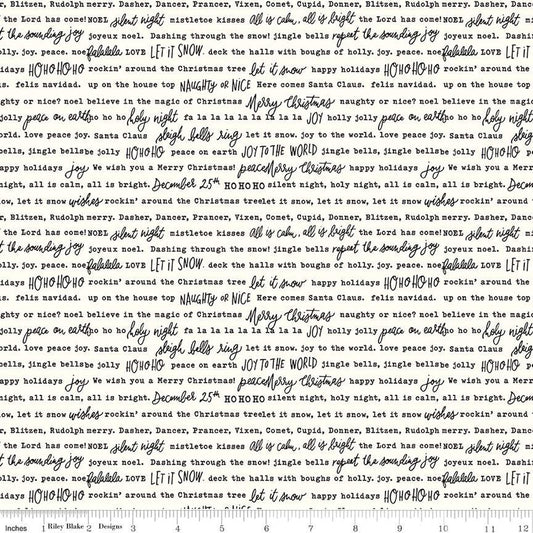 r, Blitzen, Rudolph merry. Dasher, Dancer, Prancer, Vixen, Comet, Cupid, Donner, Blitzen, Rudolph merry. Dasher, Dancer, Pranc
f the Lord has come! NOEL silent night mistletoe kisses All is calm, all is bright the Lord has come! NOEL silent night mistl
t the sounding joy joyeux noel. Dashing through the snow! jingle bells repeat the sounding joy joyeux noel. Dashi
olly. joy. peace. noel falalala LOVE LET IT SNOW. deck the halls with boughs of holly. joy. peace. noel falalala LOVE LET IT
idays HO HO HO HO rockin' around the Christmas tree let it snow happy holidays HO HO HO HO rockin' around the
s. feliz navidad. up on the house top NAUGHTY OR NICE Here comes Santa Claus. feliz navidad. up on the house top
ghty or nice? noel believe in the magic of Christmas Merry Christmas naughty or nice? noel believe in the magic
holly jolly peace on earth ho ho ho holy night fa la la la la la la la JOY holly jolly peace on earth ho ho ho holy night
orld. love peace joy. Santa Claus sleigh bells ring let it snow. joy to the world. love peace joy. Santa Claus sleig
bells, jingle bells be jolly HO HO HO peace on earth JOY TO THE WORLD jingle bells, jingle bells be jolly HO HO HO pe
appy holidays joy We wish you a Merry Christmas! peace Merry Christmas happy holidays joy We wish you a Merr
night, all is calm, all is bright. December 25th HO HO HO silent night, holy night, all is calm, all is bright. Decem
ow, let it snow wishes rockin' around the Christmas tree let it snow, let it snow, let it snow wishes rockin' around
r, Blitzen, Rudolph merry. Dasher, Dancer, Prancer, Vixen, Comet, Cupid, Donner, Blitzen, Rudolph merry. Dasher, Dancer, Pranc
f the Lord has come! NOEL silent night mistletoe kisses All is calm, all is bright the Lord has come! NOEL silent night mistl
t the sounding joy joyeux noel. Dashing through the snow! jingle bells repeat the sounding joy joyeux noel. Dashi
olly. joy. peace. noel falalala LOVE LET IT SNOW. deck the halls with boughs of holly. joy. peace. noel falalala LOVE LET IT
idays HO HO HO HO rockin' around the Christmas tree let it snow happy holidays HO HO HO HO rockin' around the
s. feliz navidad. up on the house top NAUGHTY OR NICE Here comes Santa Claus. feliz navidad. up on the house top
ghty or nice? noel believe in the magic of Christmas Merry Christmas naughty or nice? noel believe in the magic
holly jolly peace on earth ho ho ho holy night fa la la la la la la la JOY holly jolly peace on earth ho ho ho holy night
orld. love peace joy. Santa Claus sleigh bells ring let it snow. joy to the world. love peace joy. Santa Claus sleig
bells, jingle bells be jolly HO HO HO peace on earth JOY TO THE WORLD jingle bells, jingle bells be jolly HO HO HO pe
appy holidays joy We wish you a Merry Christmas! peace Merry Christmas happy holidays joy We wish you a Merr
night, all is calm, all is bright. December 25th HO HO HO silent night, holy night, all is calm, all is bright. Decem
ow, let it snow wishes rockin' around the Christmas tree let it snow, let it snow, let it snow wishes rockin' around
r, Blitzen, Rudolph merry. Dasher, Dancer, Prancer, Vixen, Comet, Cupid, Donner, Blitzen, Rudolph merry. Dasher, Dancer, Pranc
f the Lord has come! NOEL silent night mistletoe kisses All is calm, all is bright the Lord has come! NOEL silent night mistl
t the sounding joy joyeux noel. Dashing through the snow! jingle bells repeat the sounding joy joyeux noel. Dashi
olly. joy. peace. noel falalala LOVE LET IT SNOW. deck the halls with boughs of holly. joy. peace. noel falalala LOVE LET IT
idays HO HO HO HO rockin' around the Christmas tree let it snow happy holidays HO HO HO HO rockin' around the
Inches 1 Riley Blake 2 Designs 3 4 5 6 7 8 9 10 11 12